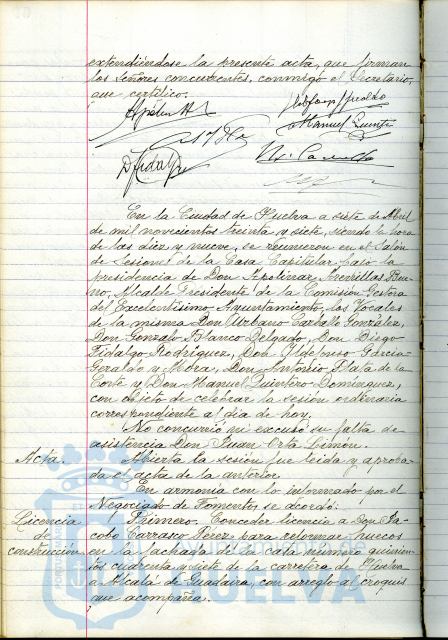 extendiéndose la presente acta, que firman
los Señores concurrentes, conmigo el Secretario,
que certifico.
Manuel Quintero
D. Fidalgo
En la Ciudad de Huelva a siete de Abril
de mil novecientos treinta y siete, siendo la hora
de las diez y nueve, se reunieron en el Salón
de Sesiones de la Casa Capitular bajo la
presidencia de Don Apolinar Arenillas Bue-
no, Alcalde Presidente de la Comisión Gestora
del Excelentísimo Ayuntamiento, los Vocales
de la misma Don Urbano Carballo González,
Don Gonzalo Blanco Delgado, Don Diego
Fidalgo Rodríguez, Don Ildefonso García-
Geraldo y Mora, Don Antonio Plata de la
Corte y Don Manuel Quintero Domínguez,
con objeto de celebrar la sesión ordinaria
correspondiente al día de hoy.
No concurrió ni excusó su falta de
asistencia Don Juan Orta Limón.
Acta. Abierta la sesión fue leída y aproba-
da el acta de la anterior.
En armonía con lo informado por el
Negociado de Fomentos se acordó:
Licencia de construcción Primero. Conceder licencia a Don Ja-
cobo Carrasco Pérez para reformar huecos
en la fachada de la casa número quinien-
tos cuarenta y siete de la carretera de Huelva
a Alcalá de Guadaira, con arreglo al croquis
que acompaña.
HUELVA